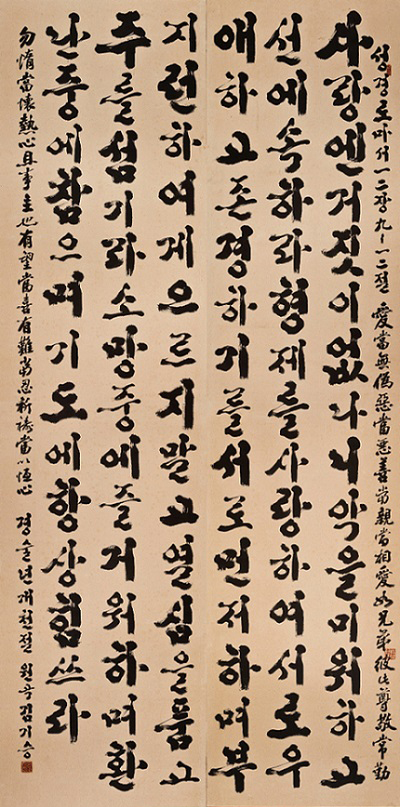 성경로마서 一二장 九~一二절 愛當無僞惡當惡善當親當相愛如兄弟彼此尊敬常勤
사랑엔거짓이없나니악을미워하고
선에속하라형제를사랑하여서로우
애하고존경하기를서로먼저하며부
지런하여게으르지말고열심을품고
주를섬기라소망중에즐거워하며환
난중에참으며기도에항상힘쓰라
勿惰當懷熱心且事主也有望當喜有難當忍祈禱當以恒心 경술년개천절 원곡김기승